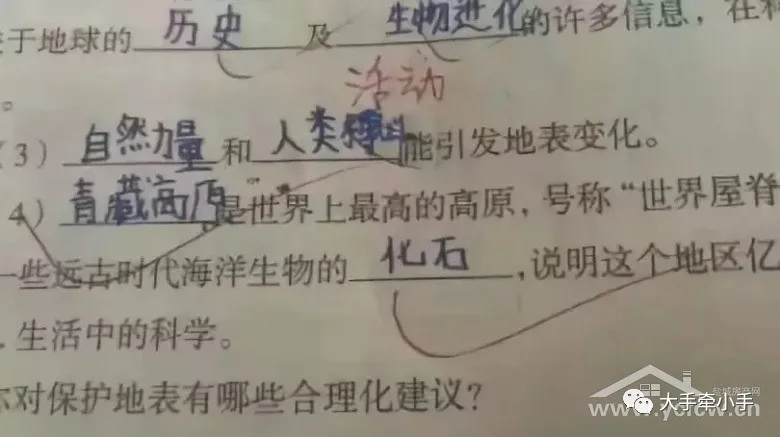 于地球的 历史 及 生物进化的许多信息，在
。
活动
（3）自然力量 和 人类 能引发地表变化。
4）青藏高原 是世界上最高的高原，号称“世界屋脊
一些远古时代海洋生物的 化石 ，说明这个地区亿
生活中的科学。
你对保护地表有哪些合理化建议？
盐城房产网
www.ycfcw.cn
大手牵小手